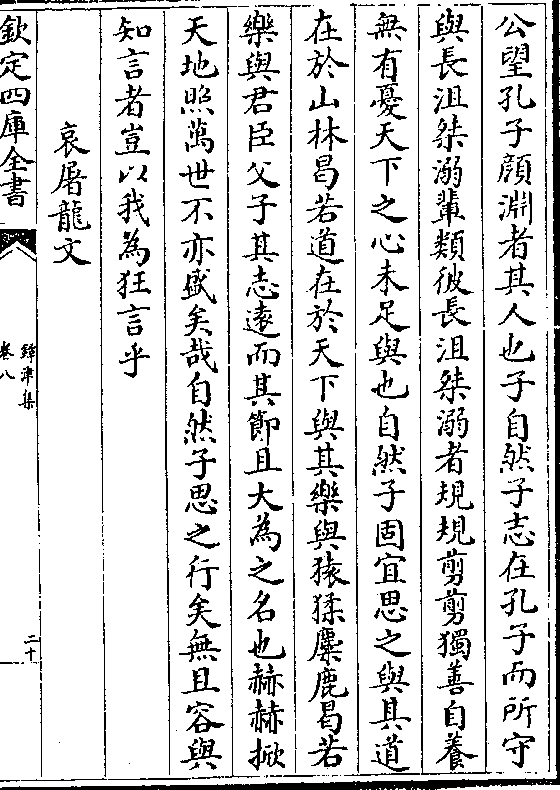 公望孔子顔淵者其人也子自然子志在孔子而所守
與長沮桀溺輩類彼長沮桀溺者規規剪剪獨善自養
無有憂天下之心未足與也自然子固宜思之與其道
在於山林曷若道在於天下與其樂與猿猱麋鹿曷若
樂與君臣父子其志逺而其節且大為之名也赫赫掀
天地照萬世不亦盛矣哉自然子思之行矣無且容與
知言者豈以我為狂言乎
哀屠龍文
欽定四庫全書
鐔津集
卷八
二十